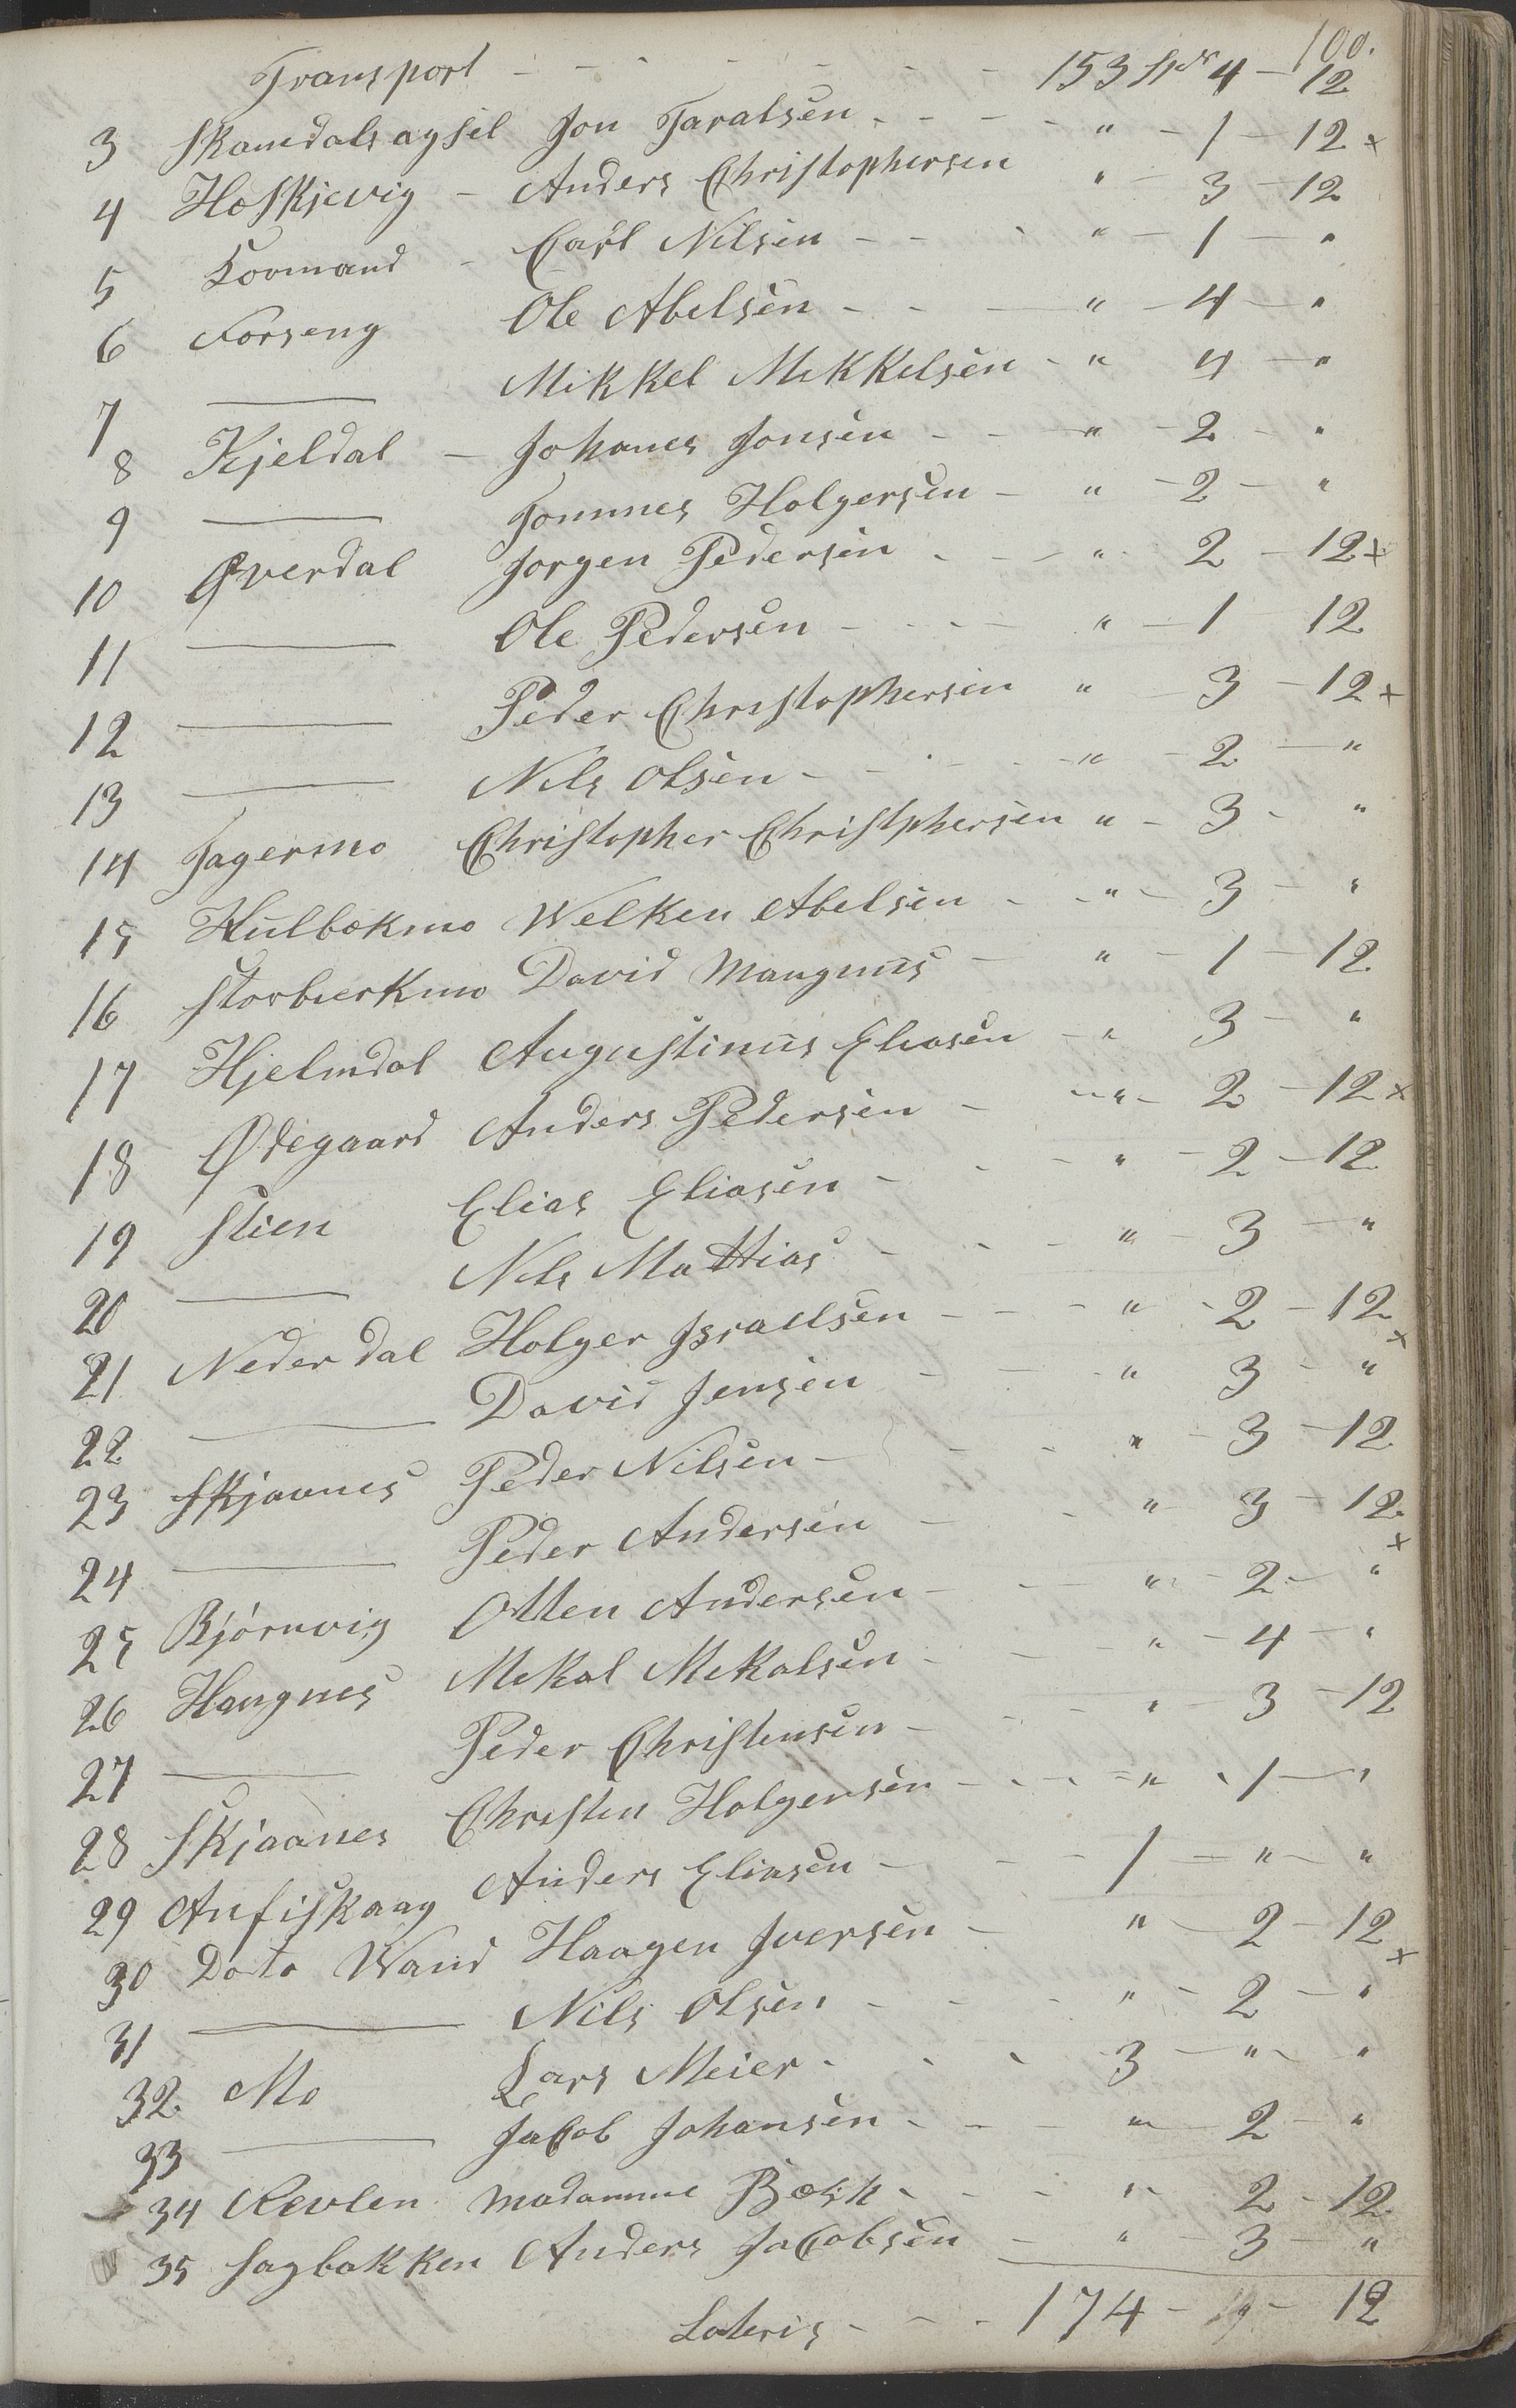 100.
Transport - - - - - - - 153 Spdr 4 - 12
3 Skamdalsagsel Jon Taralsen - - - " - 1 - 12 x
4 Hoskjevig - Anders Christophersen " - 3 - 12
5 Kormand - Carl Nilsen - - - " - 1 - "
6 Forseng Ole Abelsen - - - " - 4 - "
7 ——— Mikkel Mikkelsen - " 4 - "
8 Kjeldal - Johanes Jonsen - - " - 2 - "
9 ——— Tommes Holgersen - " - 2 - "
10 Øverdal Jorgen Pedersen - - " - 2 - 12 x
11 ——— Ole Pedersen - - - " - 1 12
12 ——— Peder Christophersen " - 3 - 12 x
13 ——— Nils Olsen - - - - " - 2 - "
14 Fagermo Christopher Christphersen " - 3 - "
15 Hulbekmo Welken Abelsen - - " - 3 - "
16 Storbierkmo David Mangnus - " - 1 - 12
17 Hjelmdal Augustinus Eliasen - " 3 - "
18 Ødegaard Anders Pedersen - - " - 2 - 12 x
19 Stien Elias Eliasen - - - " - 2 - 12
20 ——— Nils Mattias - - - " - 3 - "
21 Nederdal Holger Israelsen - - - " - 2 - 12 x
22 ——— David Jensen - - " 3 - "
23 Skjavnes Peder Nilsen - - - " - 3 - 12
24 ——— Peder Andersen - - " - 3 - 12. x
25 Bjørnvig Otten Andersen - - - " - 2 - "
26 Hangnes Mekal Mekalsen - - - " - 4 - "
27 ——— Peder Christensen - - - " - 3 - 12
28 Skjaanes Christen Holgersen - - - " - 1 - "
29 Anfiskaag Anders Eliasen - - - 1 - " - "
30 Dato Wand Haagen Iversen - " - 2 - 12 x
31 ——— Nils Olsen - - - " - 2 - "
32. Mo Lars Meier - - - 3 - " - "
33 ——— Jacob Johansen - - - " - 2 - "
34 Revlen Madamme Bech - - - " - 2 - 12
35 Sagbakken Anders Jacobsen - " - 3 - "
Lateris - - - 174 - - 12